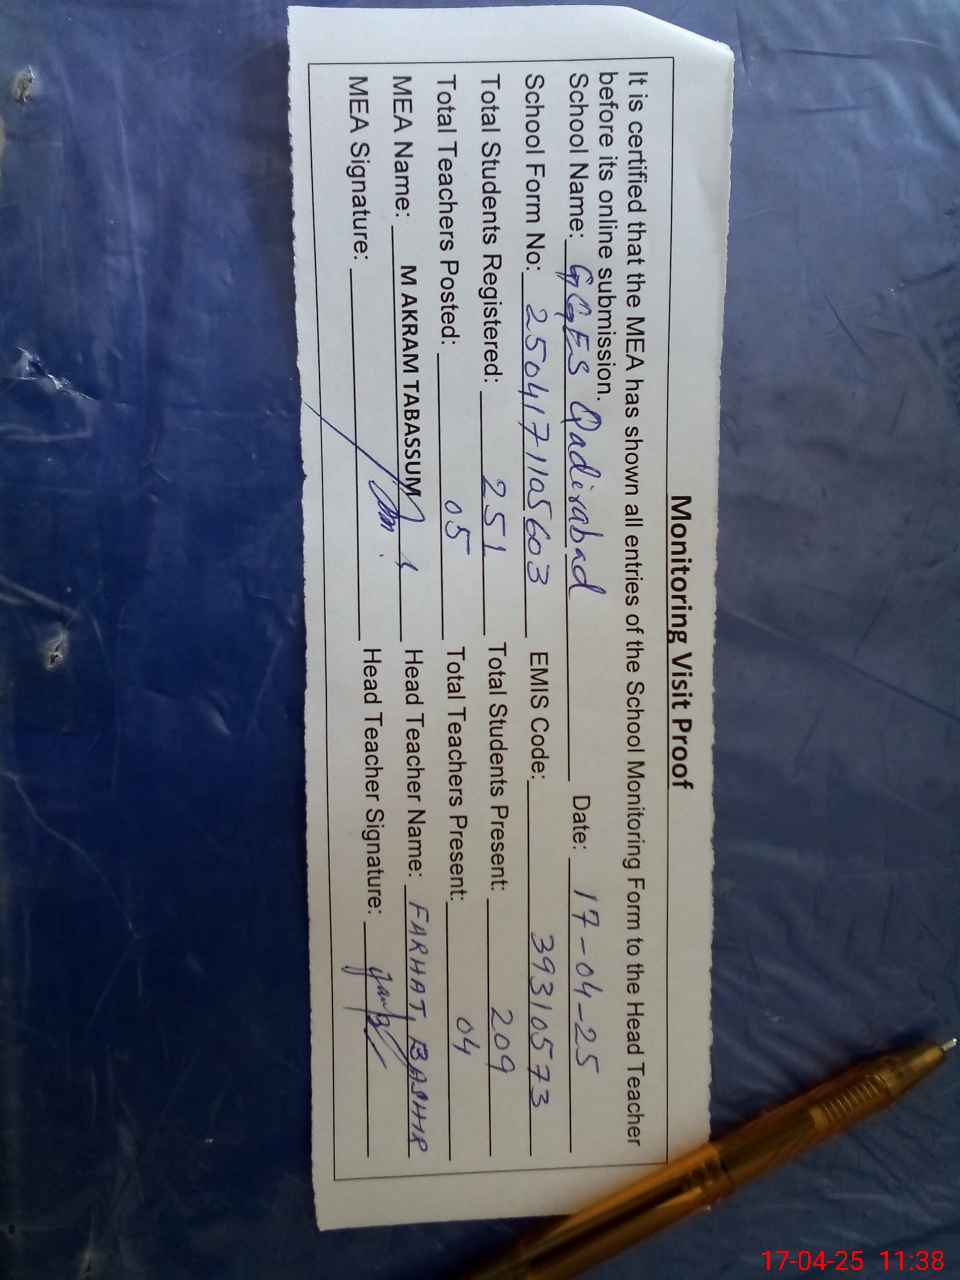 Monitoring Visit Proof
It is certified that the MEA has shown all entries of the School Monitoring Form to the Head Teacher
before its online submission.
School Name: GGES Qadirabad Date: 17-04-25
School Form No: 2504171105603 EMIS Code: 39310573
Total Students Registered: 251 Total Students Present: 209
Total Teachers Posted: 05 Total Teachers Present: 04
MEA Name: M AKRAM TABASSUM Head Teacher Name: FARHAT, BASHIR
MEA Signature: Head Teacher Signature:
17-04-25 11:38